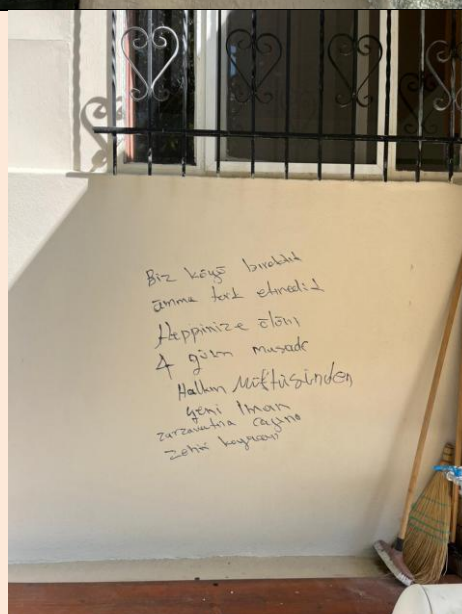 Biz köyü bıraktıt
amma terk etmedit
Heppinize ölüm
4 gün musade
Halkın Müftüsinden
yeni Imam
zurzavatına çayına
zehir koyacam